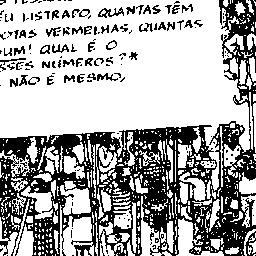 ÉU LISTRADO, QUANTAS TÊM
BOTAS VERMELHAS, QUANTAS
UM! QUAL É O
ESSES NÚMEROS?*
NÃO É MESMO,